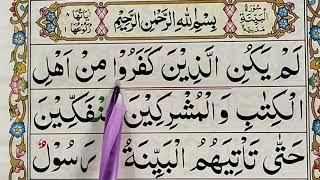 سُوْرَةُ الْبَيِّنَةِ مَدَنِيَّةٌ
بِسْمِ اللّٰهِ الرَّحْمٰنِ الرَّحِيْمِ
لَمْ يَكُنِ الَّذِيْنَ كَفَرُوْا مِنْ اَهْلِ
الْكِتٰبِ وَ الْمُشْرِكِيْنَ مُنْفَكِّيْنَ
حَتّٰى تَاْتِيَهُمُ الْبَيِّنَةُ رَسُوْلٌ